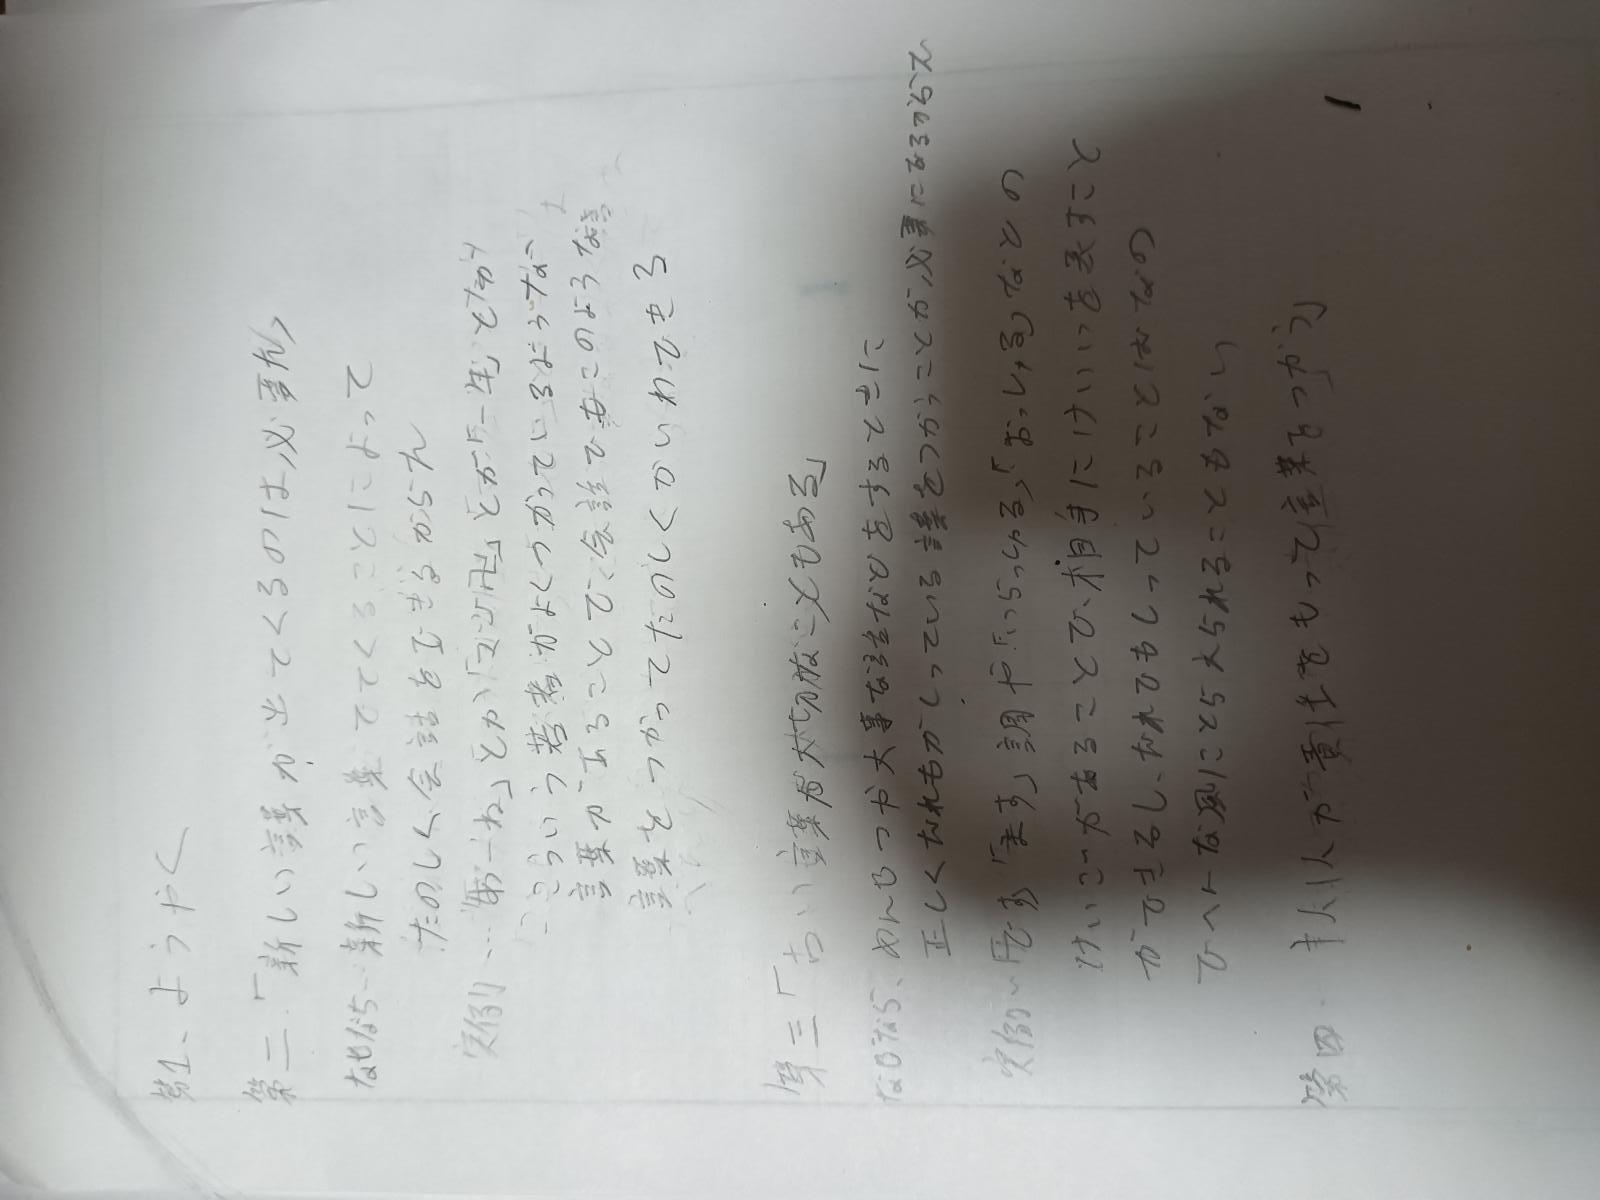 第1、ようやく
第二.「新しい言葉が出てくるのは必要」
なぜなら…新しい言葉でてくることによって
たのしく会話をできるから
実例…「とか「とか
こういう若者がよくつかっている
言葉が出ることで、会話でもこのような
言葉をつかってたのしくかいわできる
第三「古い言葉が大切なこともある」
なぜなら、めんせつや大事な話などをするときに
正しくだれもがしっている言葉をつかうことが必要になるから
実例…「です」「ます」調や「いらっしゃる」「おっしゃる」などの
けいごがあることで、相手にけいいを表すこと
ができるし、だれでもしっていることばなの
でへんな風にとらえられることもない
第四.人が責任をもって言葉をつかう